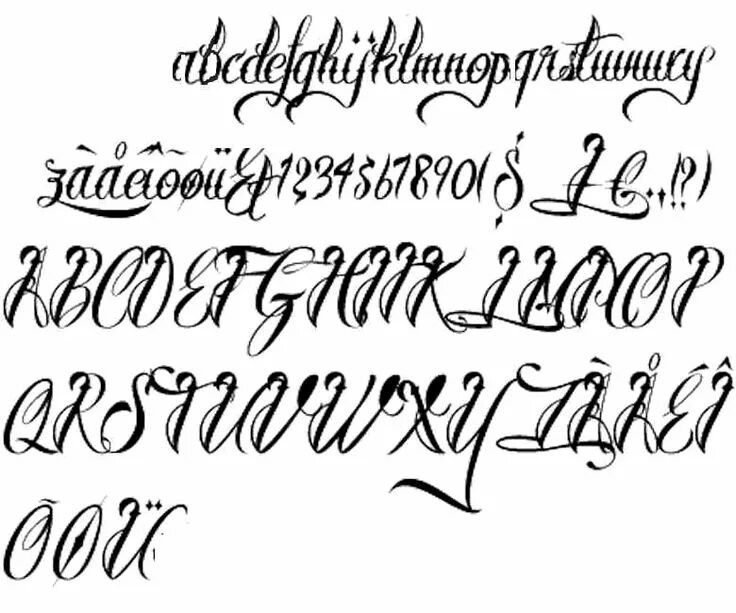 abcdefghijklmnopqrstuvwxy
zàåéîõøü&1234567890($£€.,!?)
ABCDEFGHIJKLMNOP
QRSTUVWXYZÀÅÉÎ
ÕØÜ